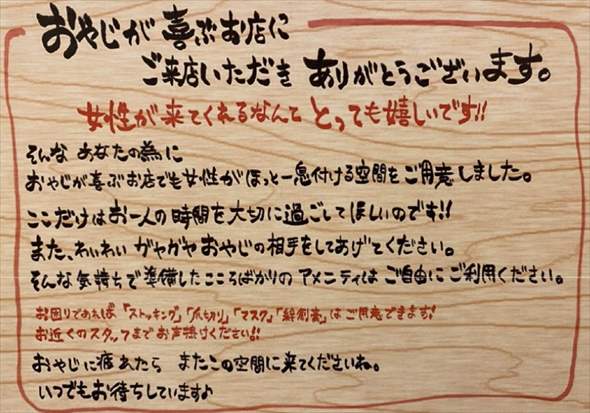 おやじが喜ぶお店に
ご来店いただき ありがとうございます。
女性が来てくれるなんて とっても嬉しいです!!
そんな あなたの為に
おやじが喜ぶお店でも女性がほっと一息付ける空間をご用意しました。
ここだけはお一人の時間を大切に過ごしてほしいのです!!
また、わいわい ガヤガヤ おやじの相手をしてあげてください。
そんな気持ちで準備したこころばかりの アメニティは ご自由にご利用ください。
お困りであれば 「ストッキング」「爪切り」「マスク」「絆創膏」はご用意できます!
お近くのスタッフまでお声掛けください!!
おやじに疲れたら またこの空間に来てくださいね。
いつでもお待ちしています♪